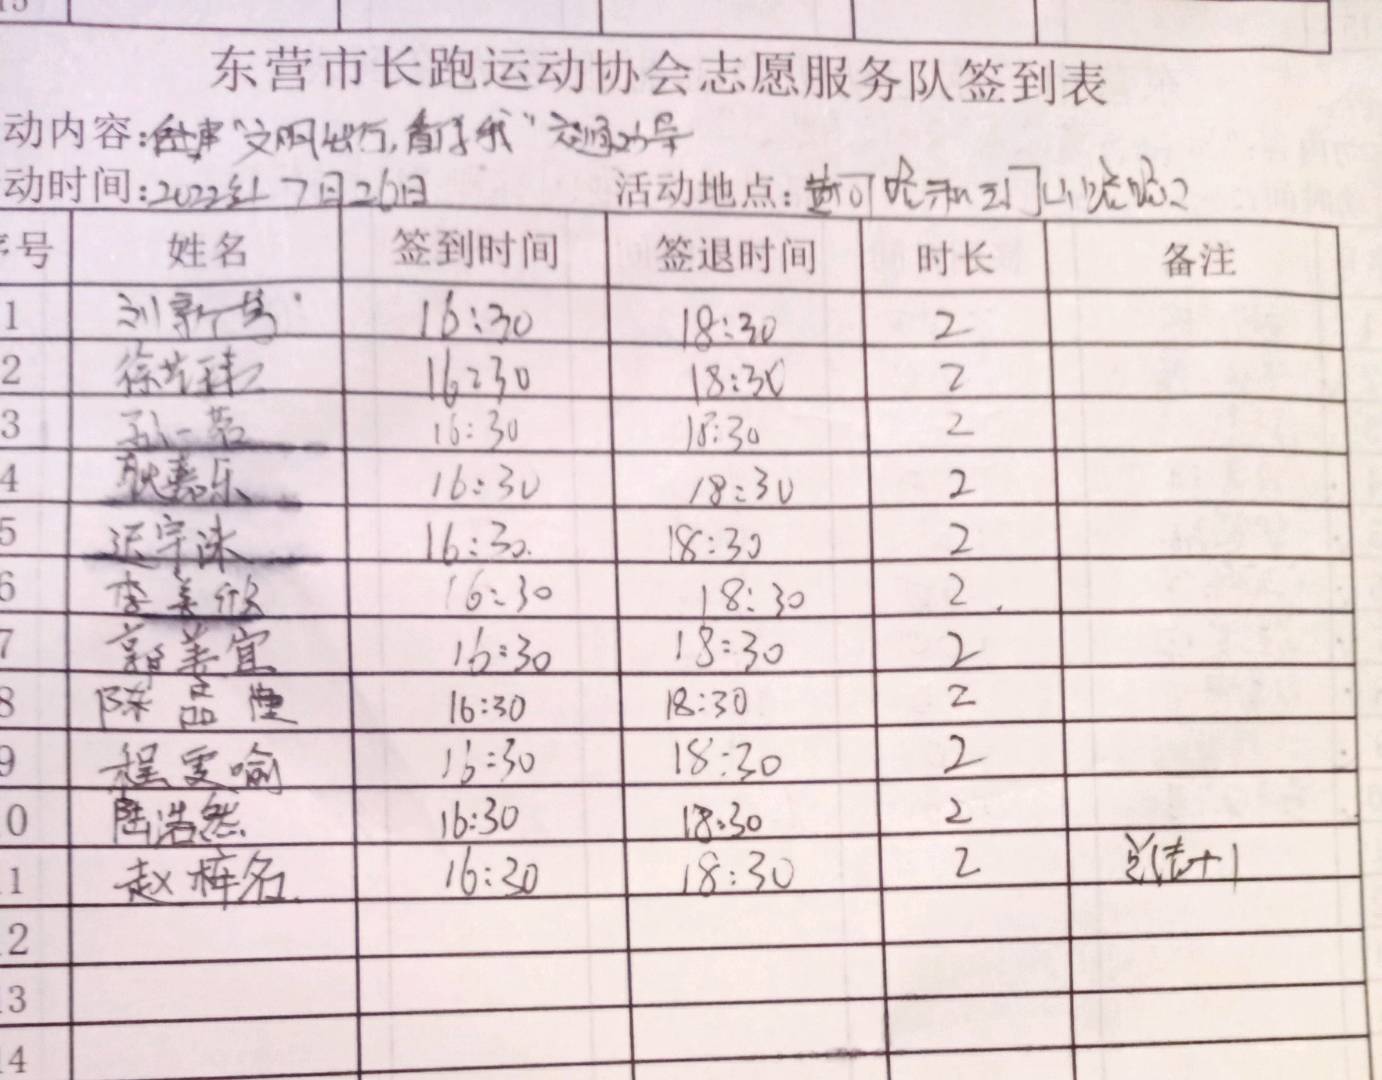 东营市长跑运动协会志愿服务队签到表
动内容: "文明出行,看我" 交通劝导
动时间: 2022年7月26日 活动地点: 黄河路和
序号 姓名 签到时间 签退时间 时长 备注
1 刘新 16:30 18:30 2
2 徐 16:30 18:30 2
3 孙一 16:30 18:30 2
4 耿嘉乐 16:30 18:30 2
5 宇沫 16:30 18:30 2
6 李美欣 16:30 18:30 2
7 郭美宜 16:30 18:30 2
8 陈品 16:30 18:30 2
9 程雯喻 16:30 18:30 2
0 陆浩然 16:30 18:30 2
1 赵梓名 16:30 18:30 2 +1
2
3
4